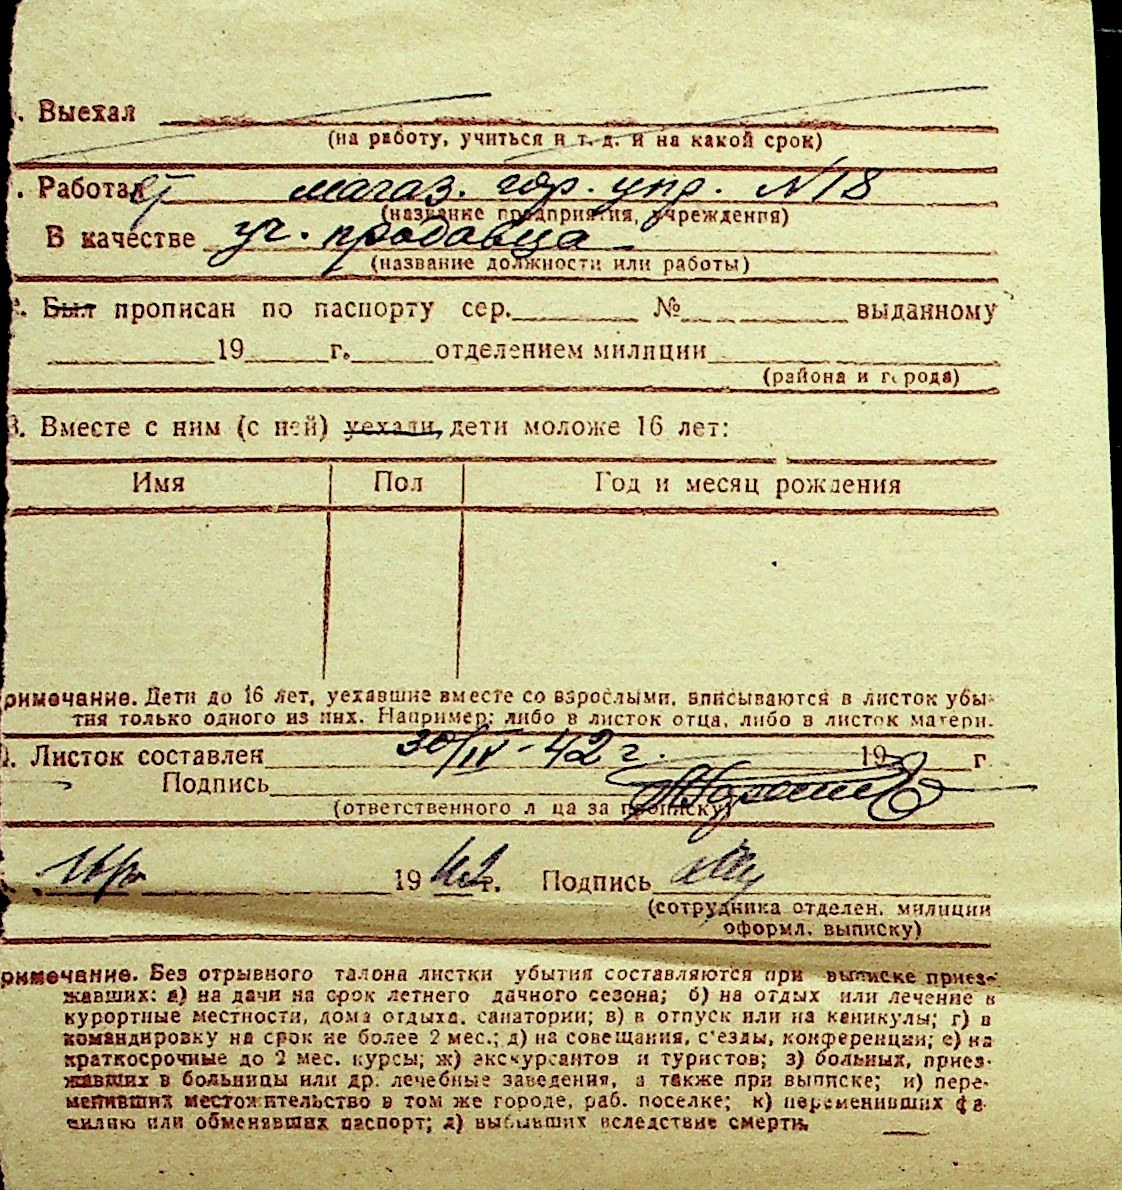 . Выехал
(на работу, учиться и т. д. и на какой срок)
. Работал магаз. гор. упр. №18
(название предприятия, учреждения)
В качестве уч. продавца
(название должности или работы)
. Был прописан по паспорту сер. № выданному
19 г. отделением милиции
(района и города)
3. Вместе с ним (с ней) уехали, дети моложе 16 лет:
Имя Пол Год и месяц рождения
римечание. Дети до 16 лет, уехавшие вместе со взрослыми, вписываются в листок убы-
тия только одного из них. Например: либо в листок отца, либо в листок матери.
. Листок составлен 30/IV-42 г. 19 г
Подпись
(ответственного лица за прописку)
19 42 г. Подпись
(сотрудника отделен. милиции
оформл. выписку)
римечание. Без отрывного талона листки убытия составляются при выписке приез-
жавших: а) на дачи на срок летнего дачного сезона; б) на отдых или лечение в
курортные местности, дома отдыха, санатории; в) в отпуск или на каникулы; г) в
командировку на срок не более 2 мес.; д) на совещания, с'езды, конференции; е) на
краткосрочные до 2 мес. курсы; ж) экскурсантов и туристов; з) больных, приез-
жавших в больницы или др. лечебные заведения, а также при выписке; и) пере-
менивших местожительство в том же городе, раб. поселке; к) переменивших фа-
милию или обменявших паспорт; л) выбывших вследствие смерти.